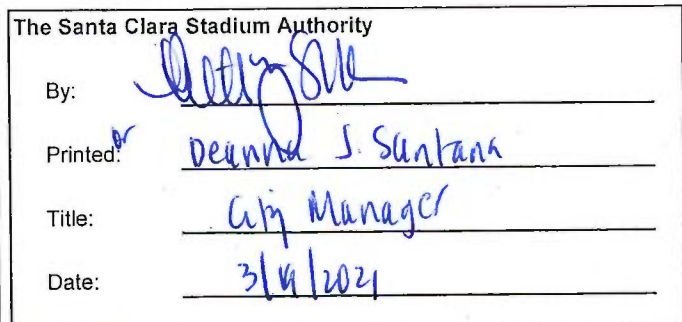 The Santa Clara Stadium Authority
By:
or
Printed: Deanna J. Santana
Title: City Manager
Date: 3/ /2021